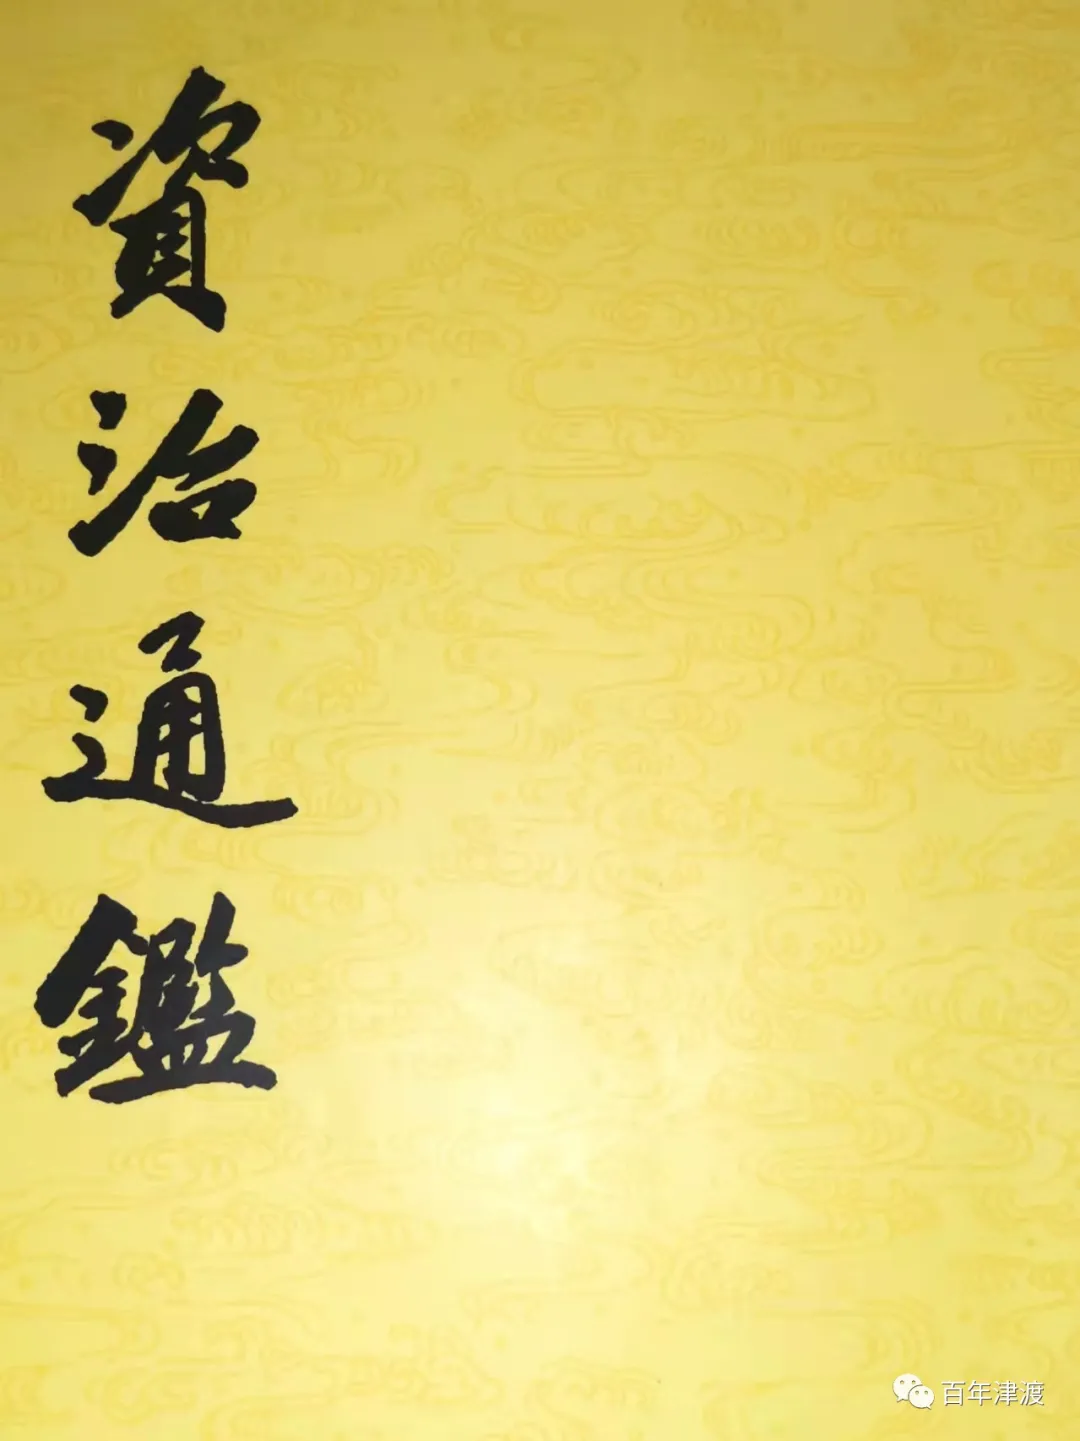 資治通鑑
百年津渡